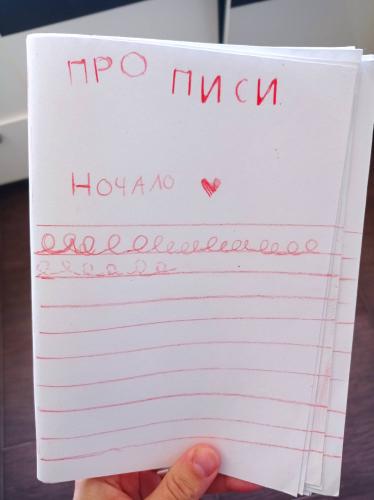 ПРО ПИСИ
НОЧАЛО